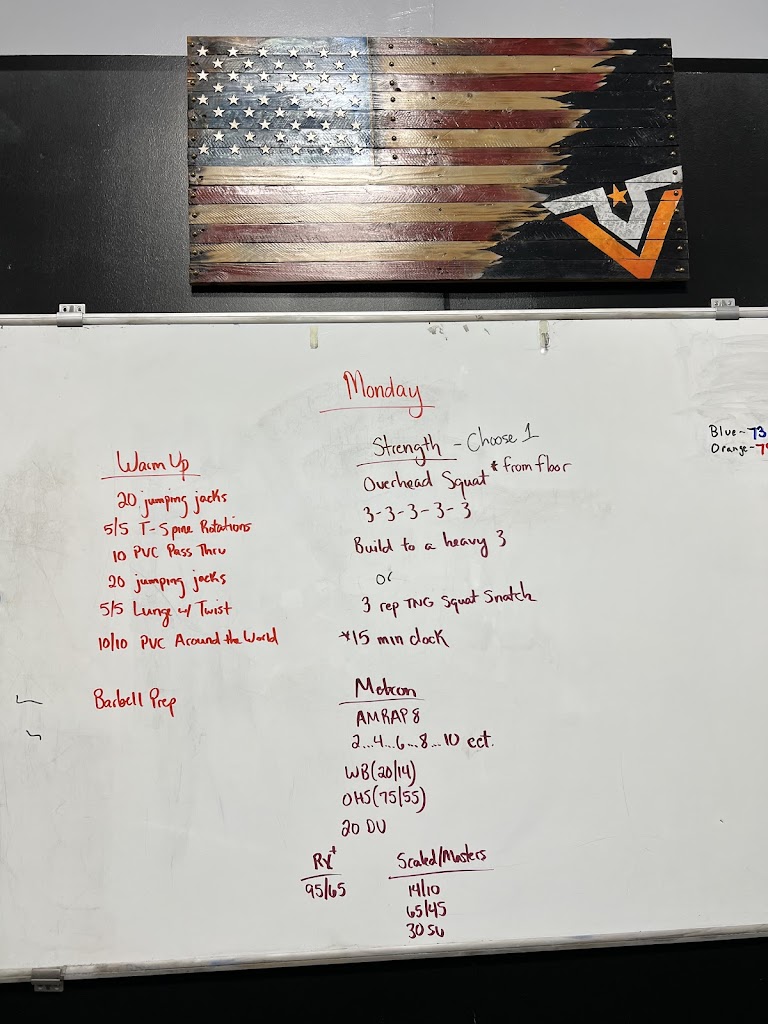 Monday
Warm Up
20 jumping jacks
5/5 T-Spine Rotations
10 PVC Pass Thru
20 jumping jacks
5/5 Lunge w/ Twist
10/10 PVC Around the World
Barbell Prep
Strength - Choose 1
Overhead Squat *from floor
3-3-3-3-3
Build to a heavy 3
or
3 rep TNG Squat Snatch
*15 min clock
Metcon
AMRAP 8
2...4...6...8...10 ect.
WB(20/14)
OHS(75/55)
20 DU
Rx+
95/65
Scaled/Masters
14/10
65/45
30 SU
Blue-73
Orange-